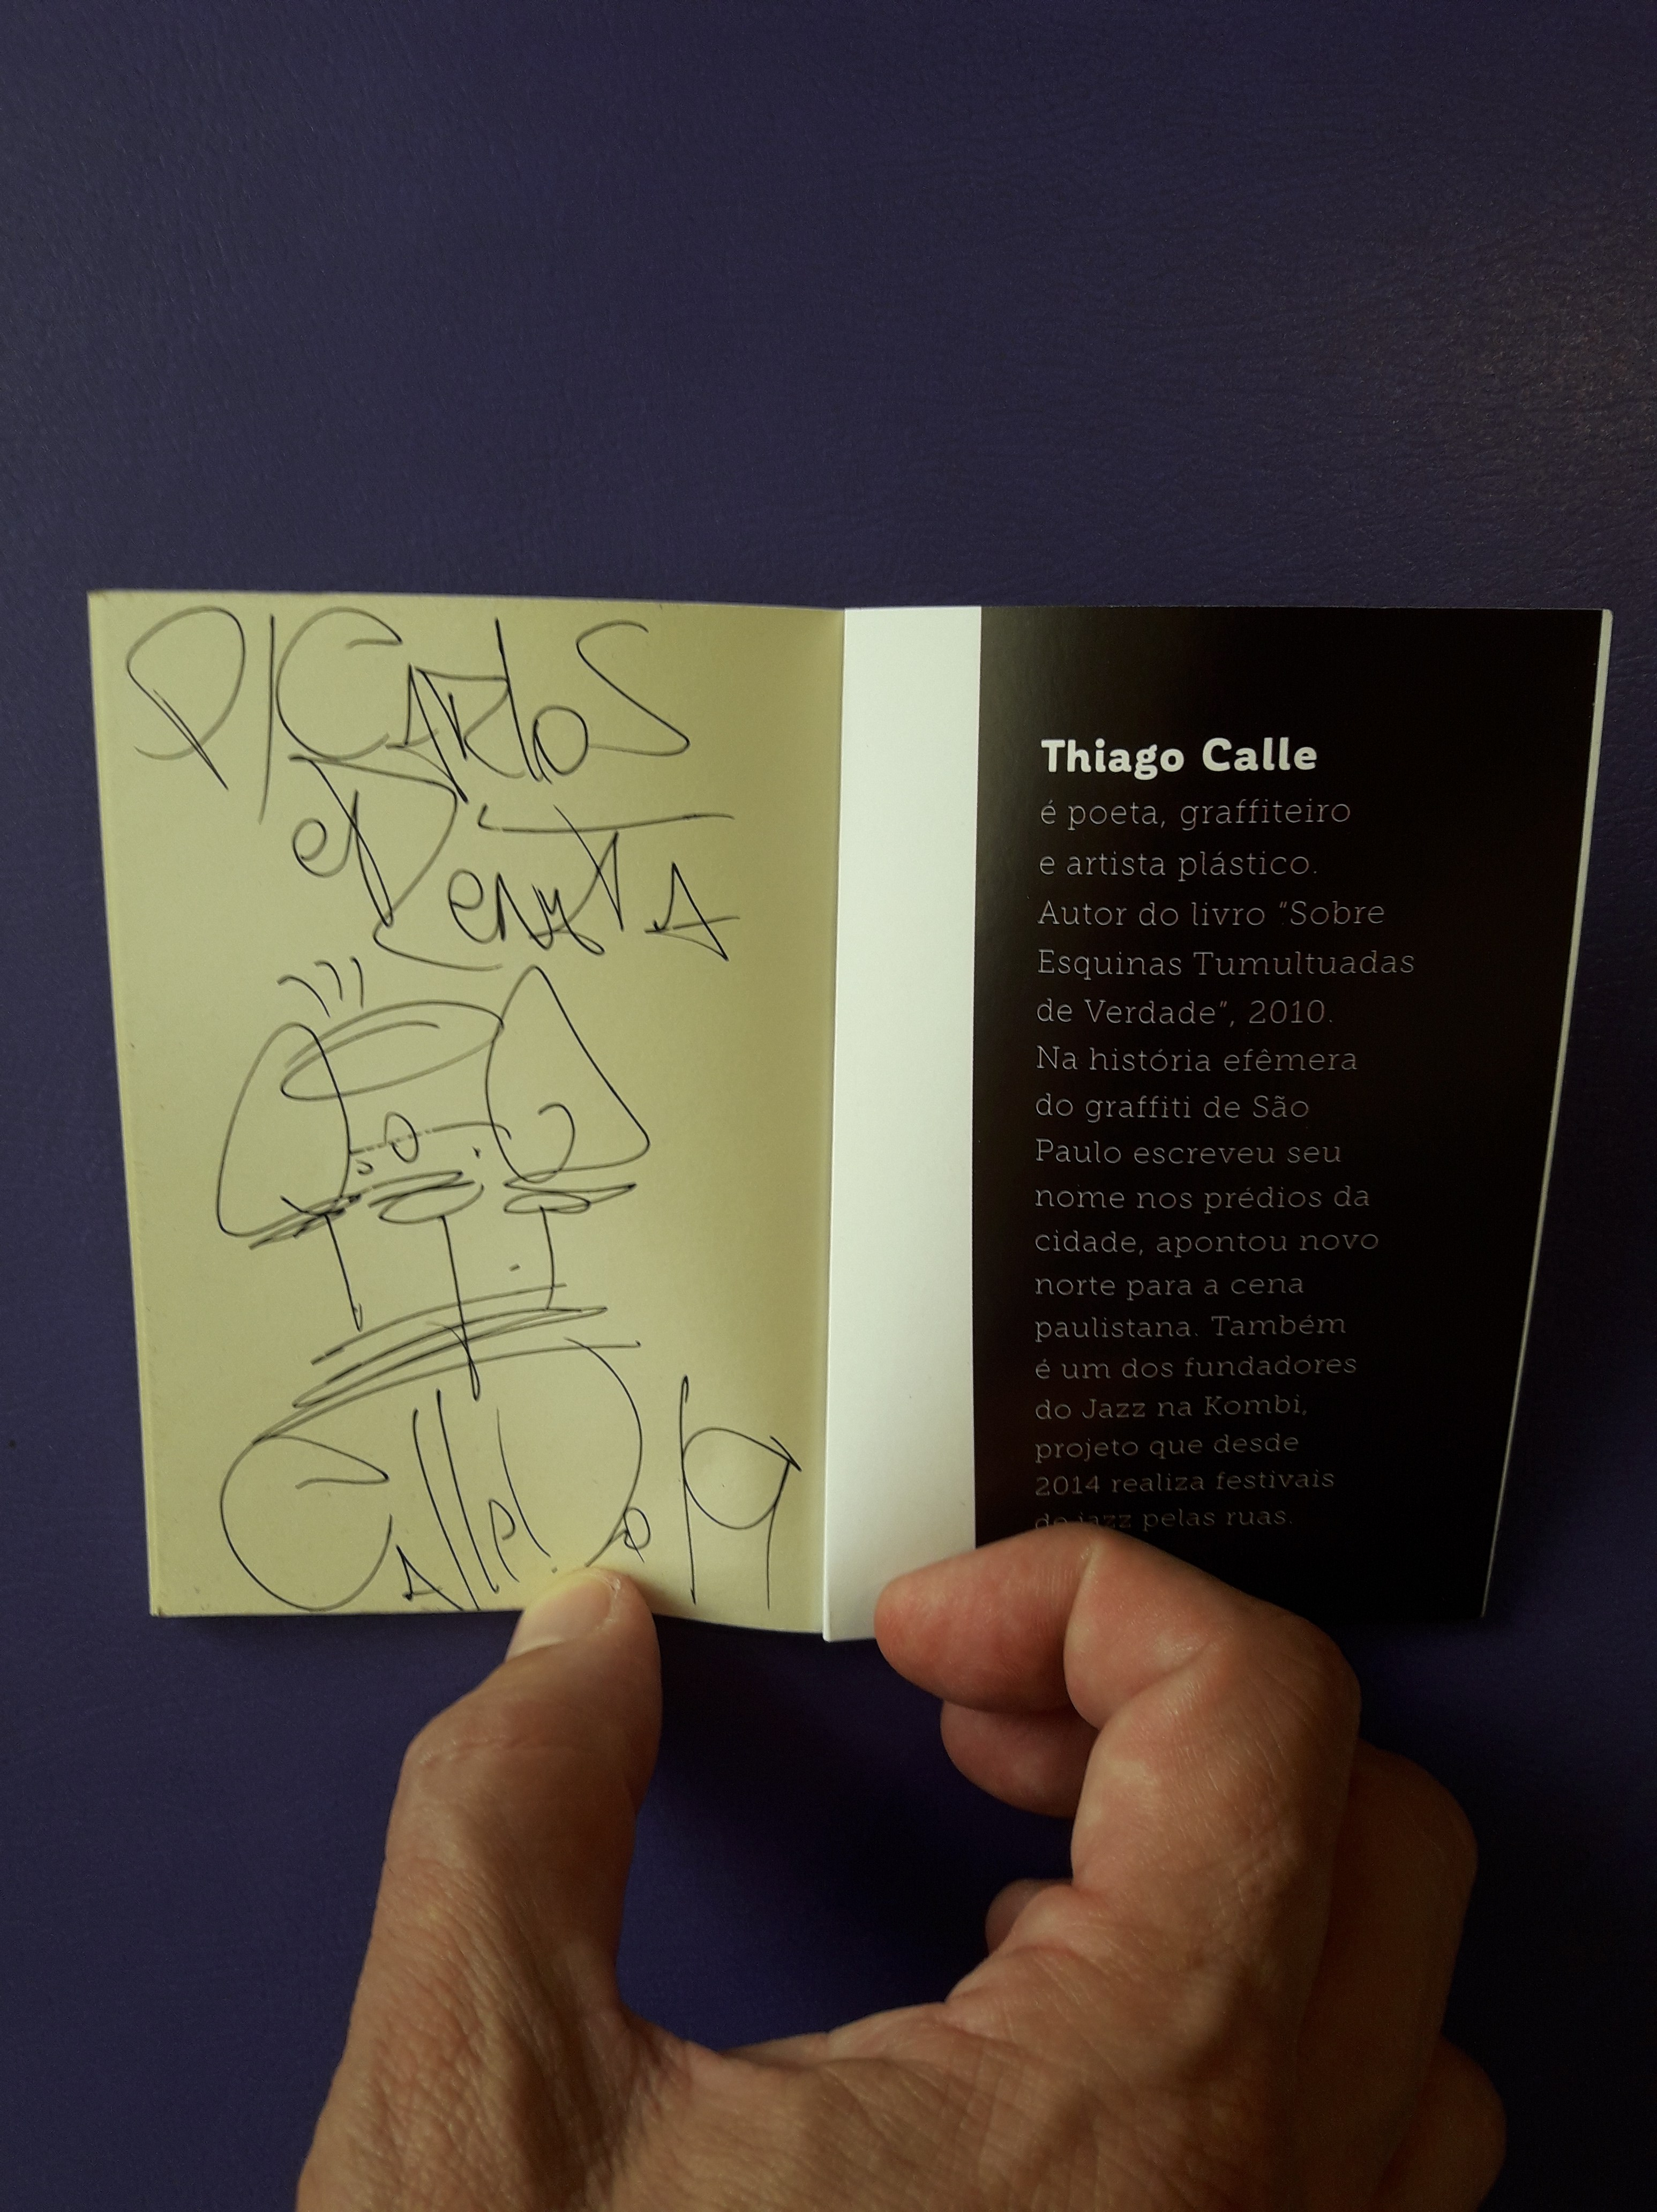 P/ CARlos
e RenATA
Calle
19
Thiago Calle
é poeta, graffiteiro
e artista plástico.
Autor do livro “Sobre
Esquinas Tumultuadas
de Verdade”, 2010.
Na história efêmera
do graffiti de São
Paulo escreveu seu
nome nos prédios da
cidade, apontou novo
norte para a cena
paulistana. Também
é um dos fundadores
do Jazz na Kombi,
projeto que desde
2014 realiza festivais
de jazz pelas ruas.